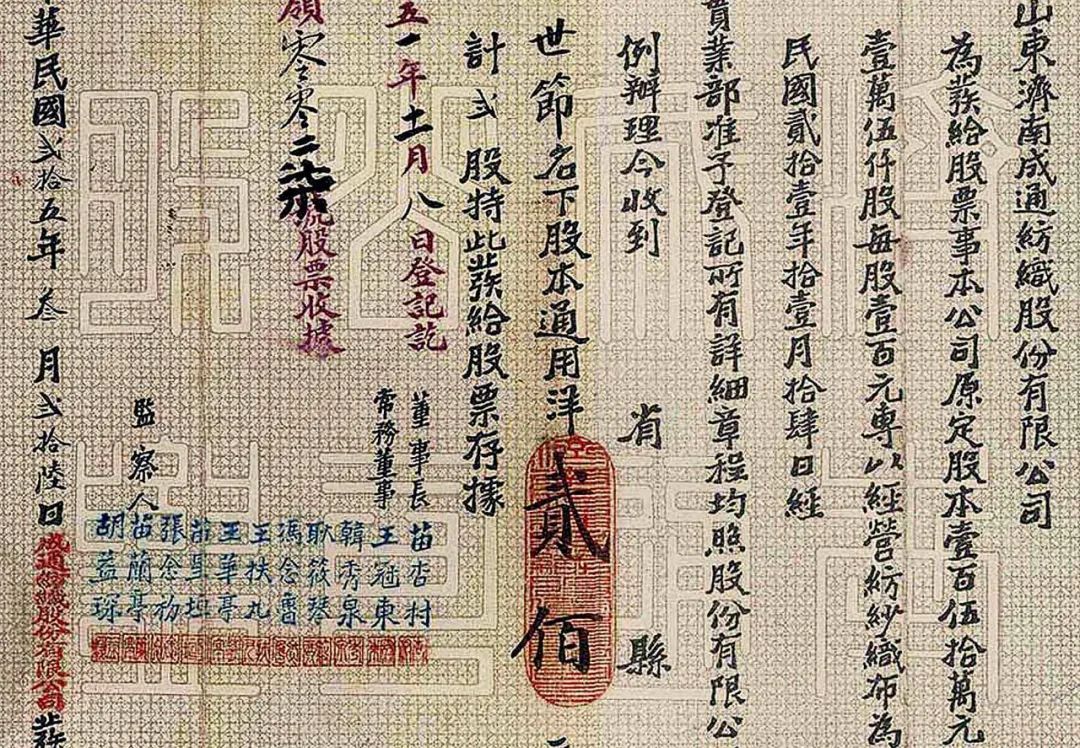 山東濟南成通紡織股份有限公司
為發給股票事本公司原定股本壹百伍拾萬元
壹萬伍仟股每股壹百元專以經營紡紗織布為
民國貳拾壹年拾壹月拾肆日經
實業部准予登記所有詳細章程均照股份有限公
例辦理今收到
省
縣
世節名下股本通用洋貳佰
計弍股特此發給股票存據
五一年十一月八日登記訖
領零零二柒號股票收據
董事長
常務董事
苗杏村
王冠東
韓秀泉
耿筱琴
馮念魯
王扶九
王華亭
苗星垣
張念礽
監察人
苗蘭亭
胡益琛
華民國弍拾五年叁月弍拾陸日成通紡織股份有限公司發